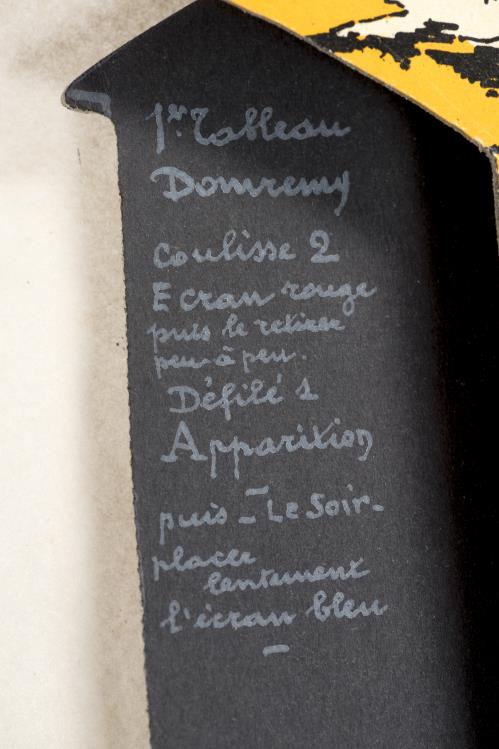 1er Tableau
Domremy
Coulisse 2
Ecran rouge
puis le retirer
peu à peu.
Défilé 1
Apparition
-
puis - Le Soir -
placer
lentement
l'écran bleu
-